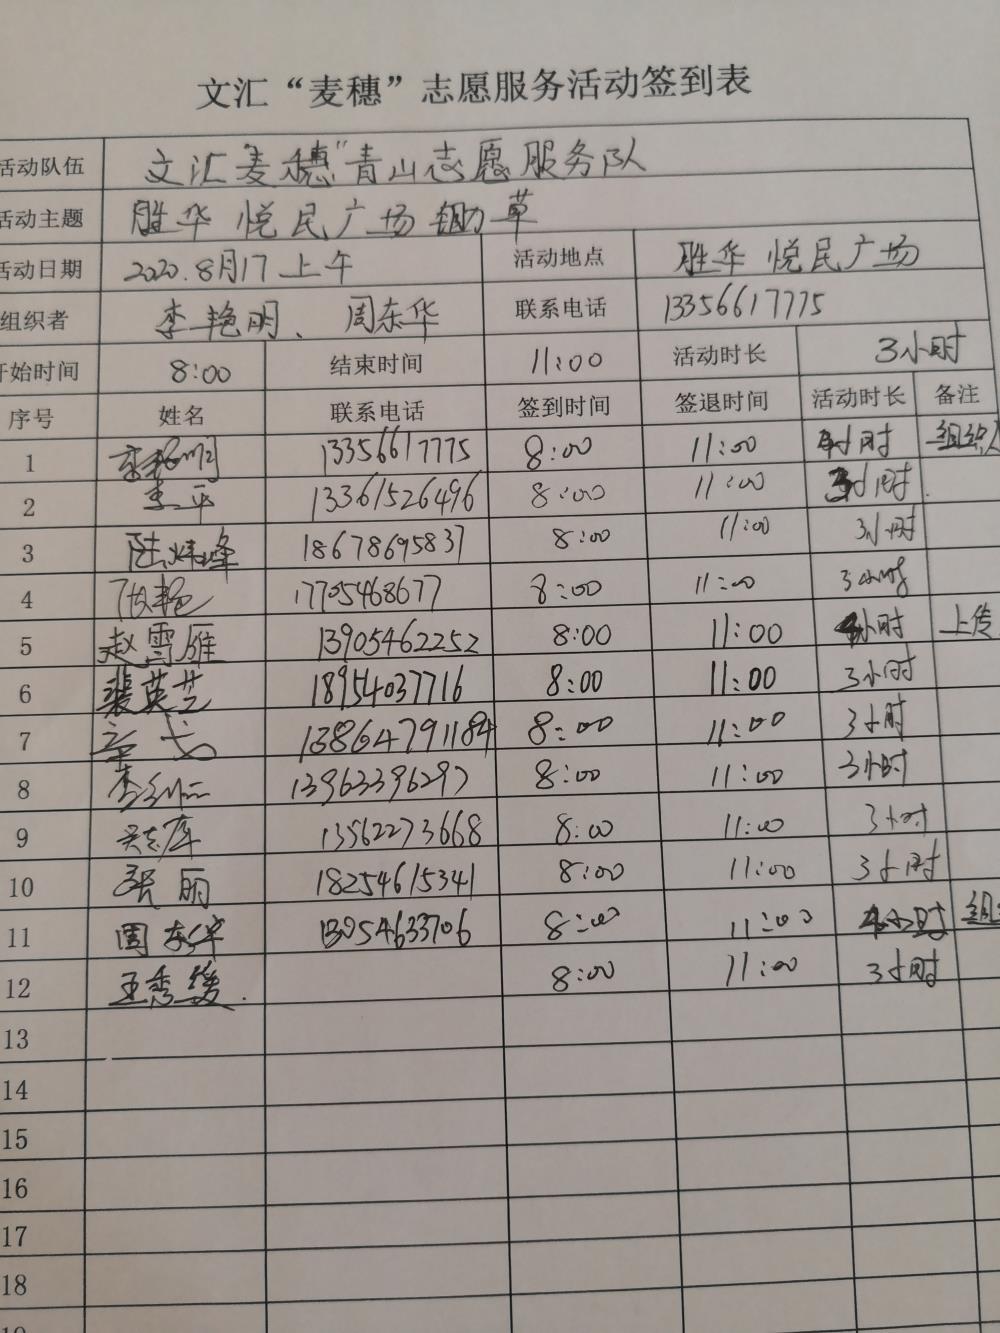 文汇“麦穗”志愿服务活动签到表
活动队伍 文汇麦穗"青山志愿服务队
活动主题 胜华 悦民广场锄草
活动日期 2020.8月17上午 活动地点 胜华 悦民广场
组织者 李艳明、周东华 联系电话 13356617775
开始时间 8:00 结束时间 11:00 活动时长 3小时
序号 姓名 联系电话 签到时间 签退时间 活动时长 备注
1 李艳明 13356617775 8:00 11:00 4小时 组织
2 李平 13361526496 8:00 11:00 3小时.
3 陆炜峰 18678695837 8:00 11:00 3小时
4 17705468677 8:00 11:00 3小时
5 赵雪雁 13905462252 8:00 11:00 4小时 上传
6 裴英芝 18954037716 8:00 11:00 3小时
7 13864791184 8:00 11:00 3小时
8 13963396297 8:00 11:00 3小时
9 吴志库 13562273668 8:00 11:00 3小时
10 张丽 18254615341 8:00 11:00 3小时
11 周东华 13054633706 8:00 11:00 4小时 组
12 8:00 11:00 3小时
13
14
15
16
17
18